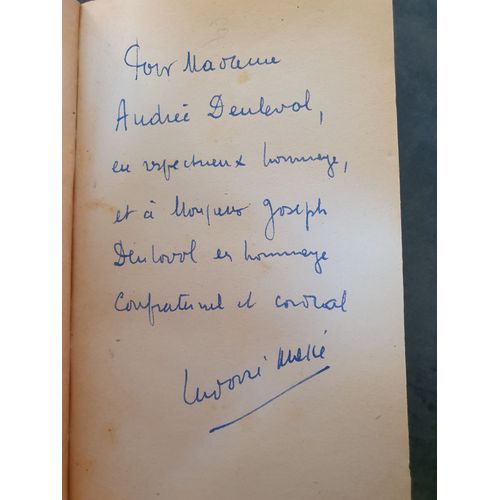 Pour Madame
Andrée Denleval,
en respectueux hommage,
et à Monsieur Joseph
Denloval en hommage
confraternel et cordial
Ludovic Massé